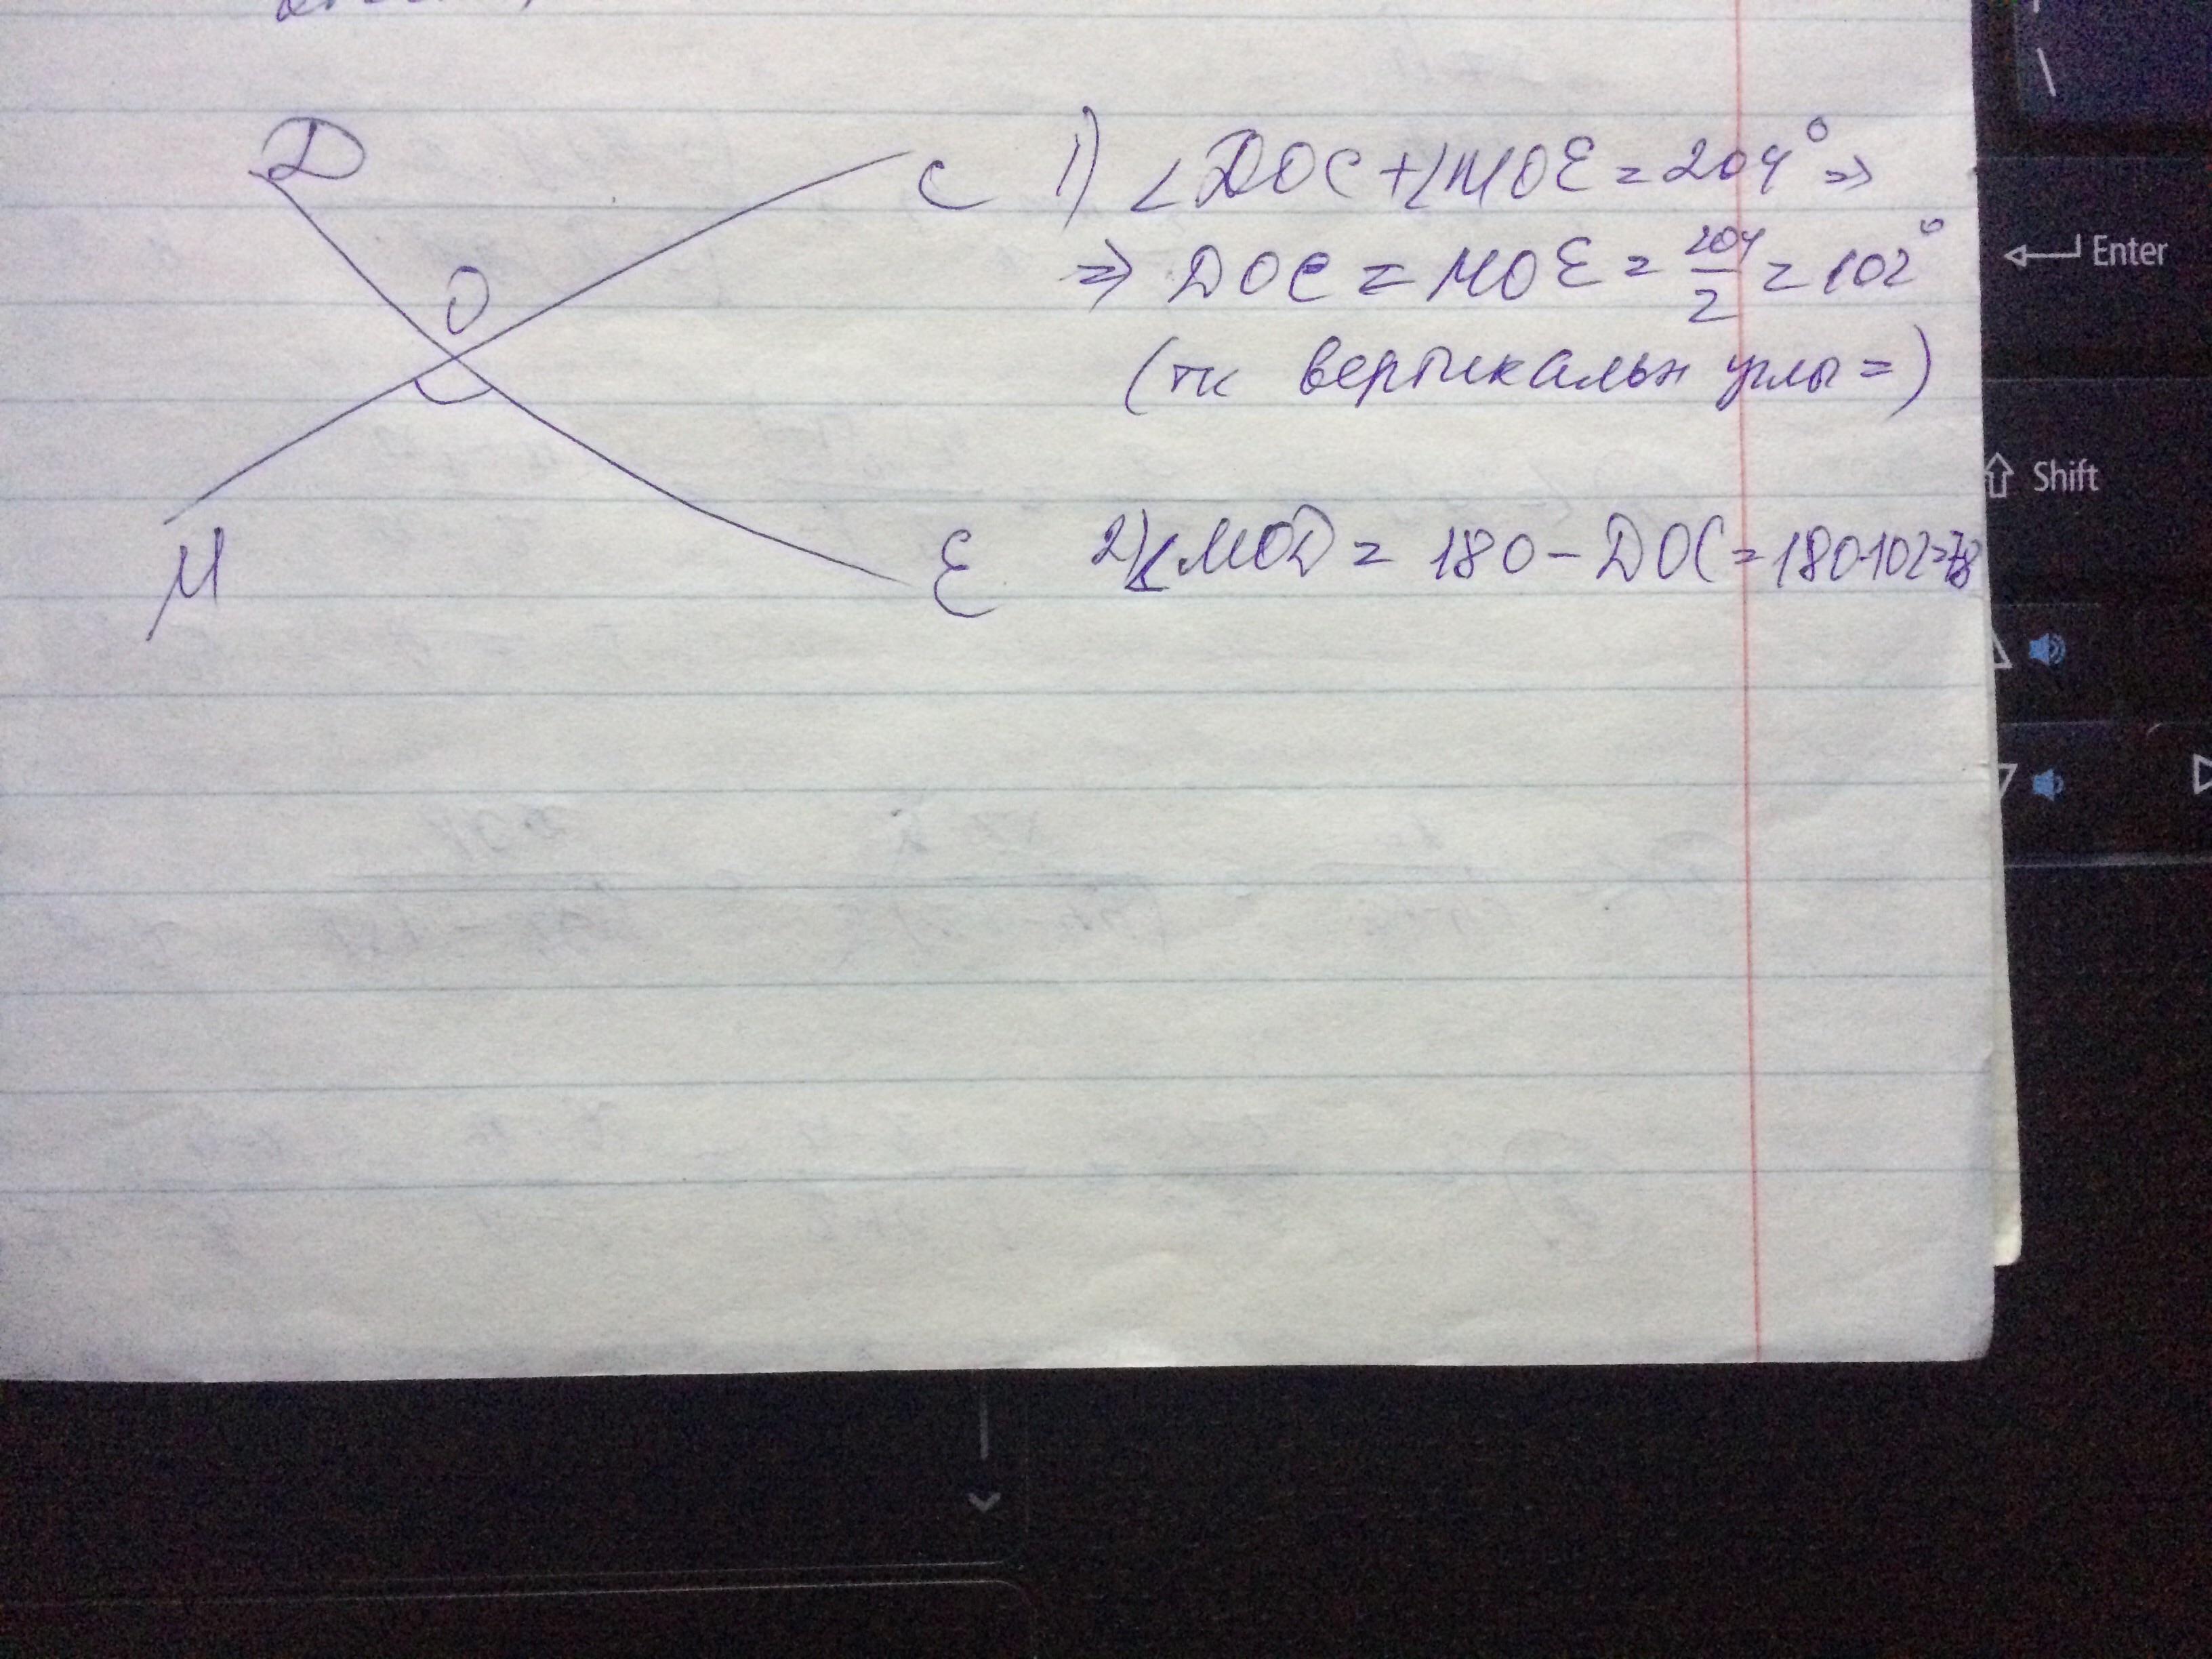 D
C
O
M
E
1) ∠DOC + ∠MOE = 204° =>
=> DOC = MOE = 204/2 = 102°
(тк вертикальн углы =)
2) ∠MOD = 180 - DOC = 180-102=78
Enter
Shift